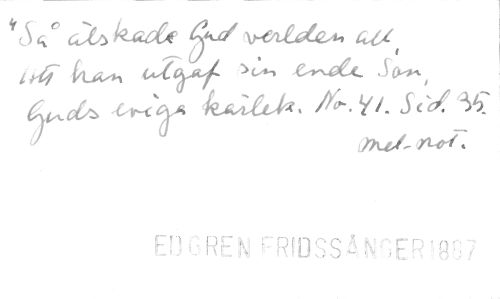 "Så älskade Gud verlden all,
Att han utgaf sin ende Son,
Guds eviga kärlek. No. 41. Sid. 35.
mel-not.
EDGREN FRIDSSÅNGER 1887